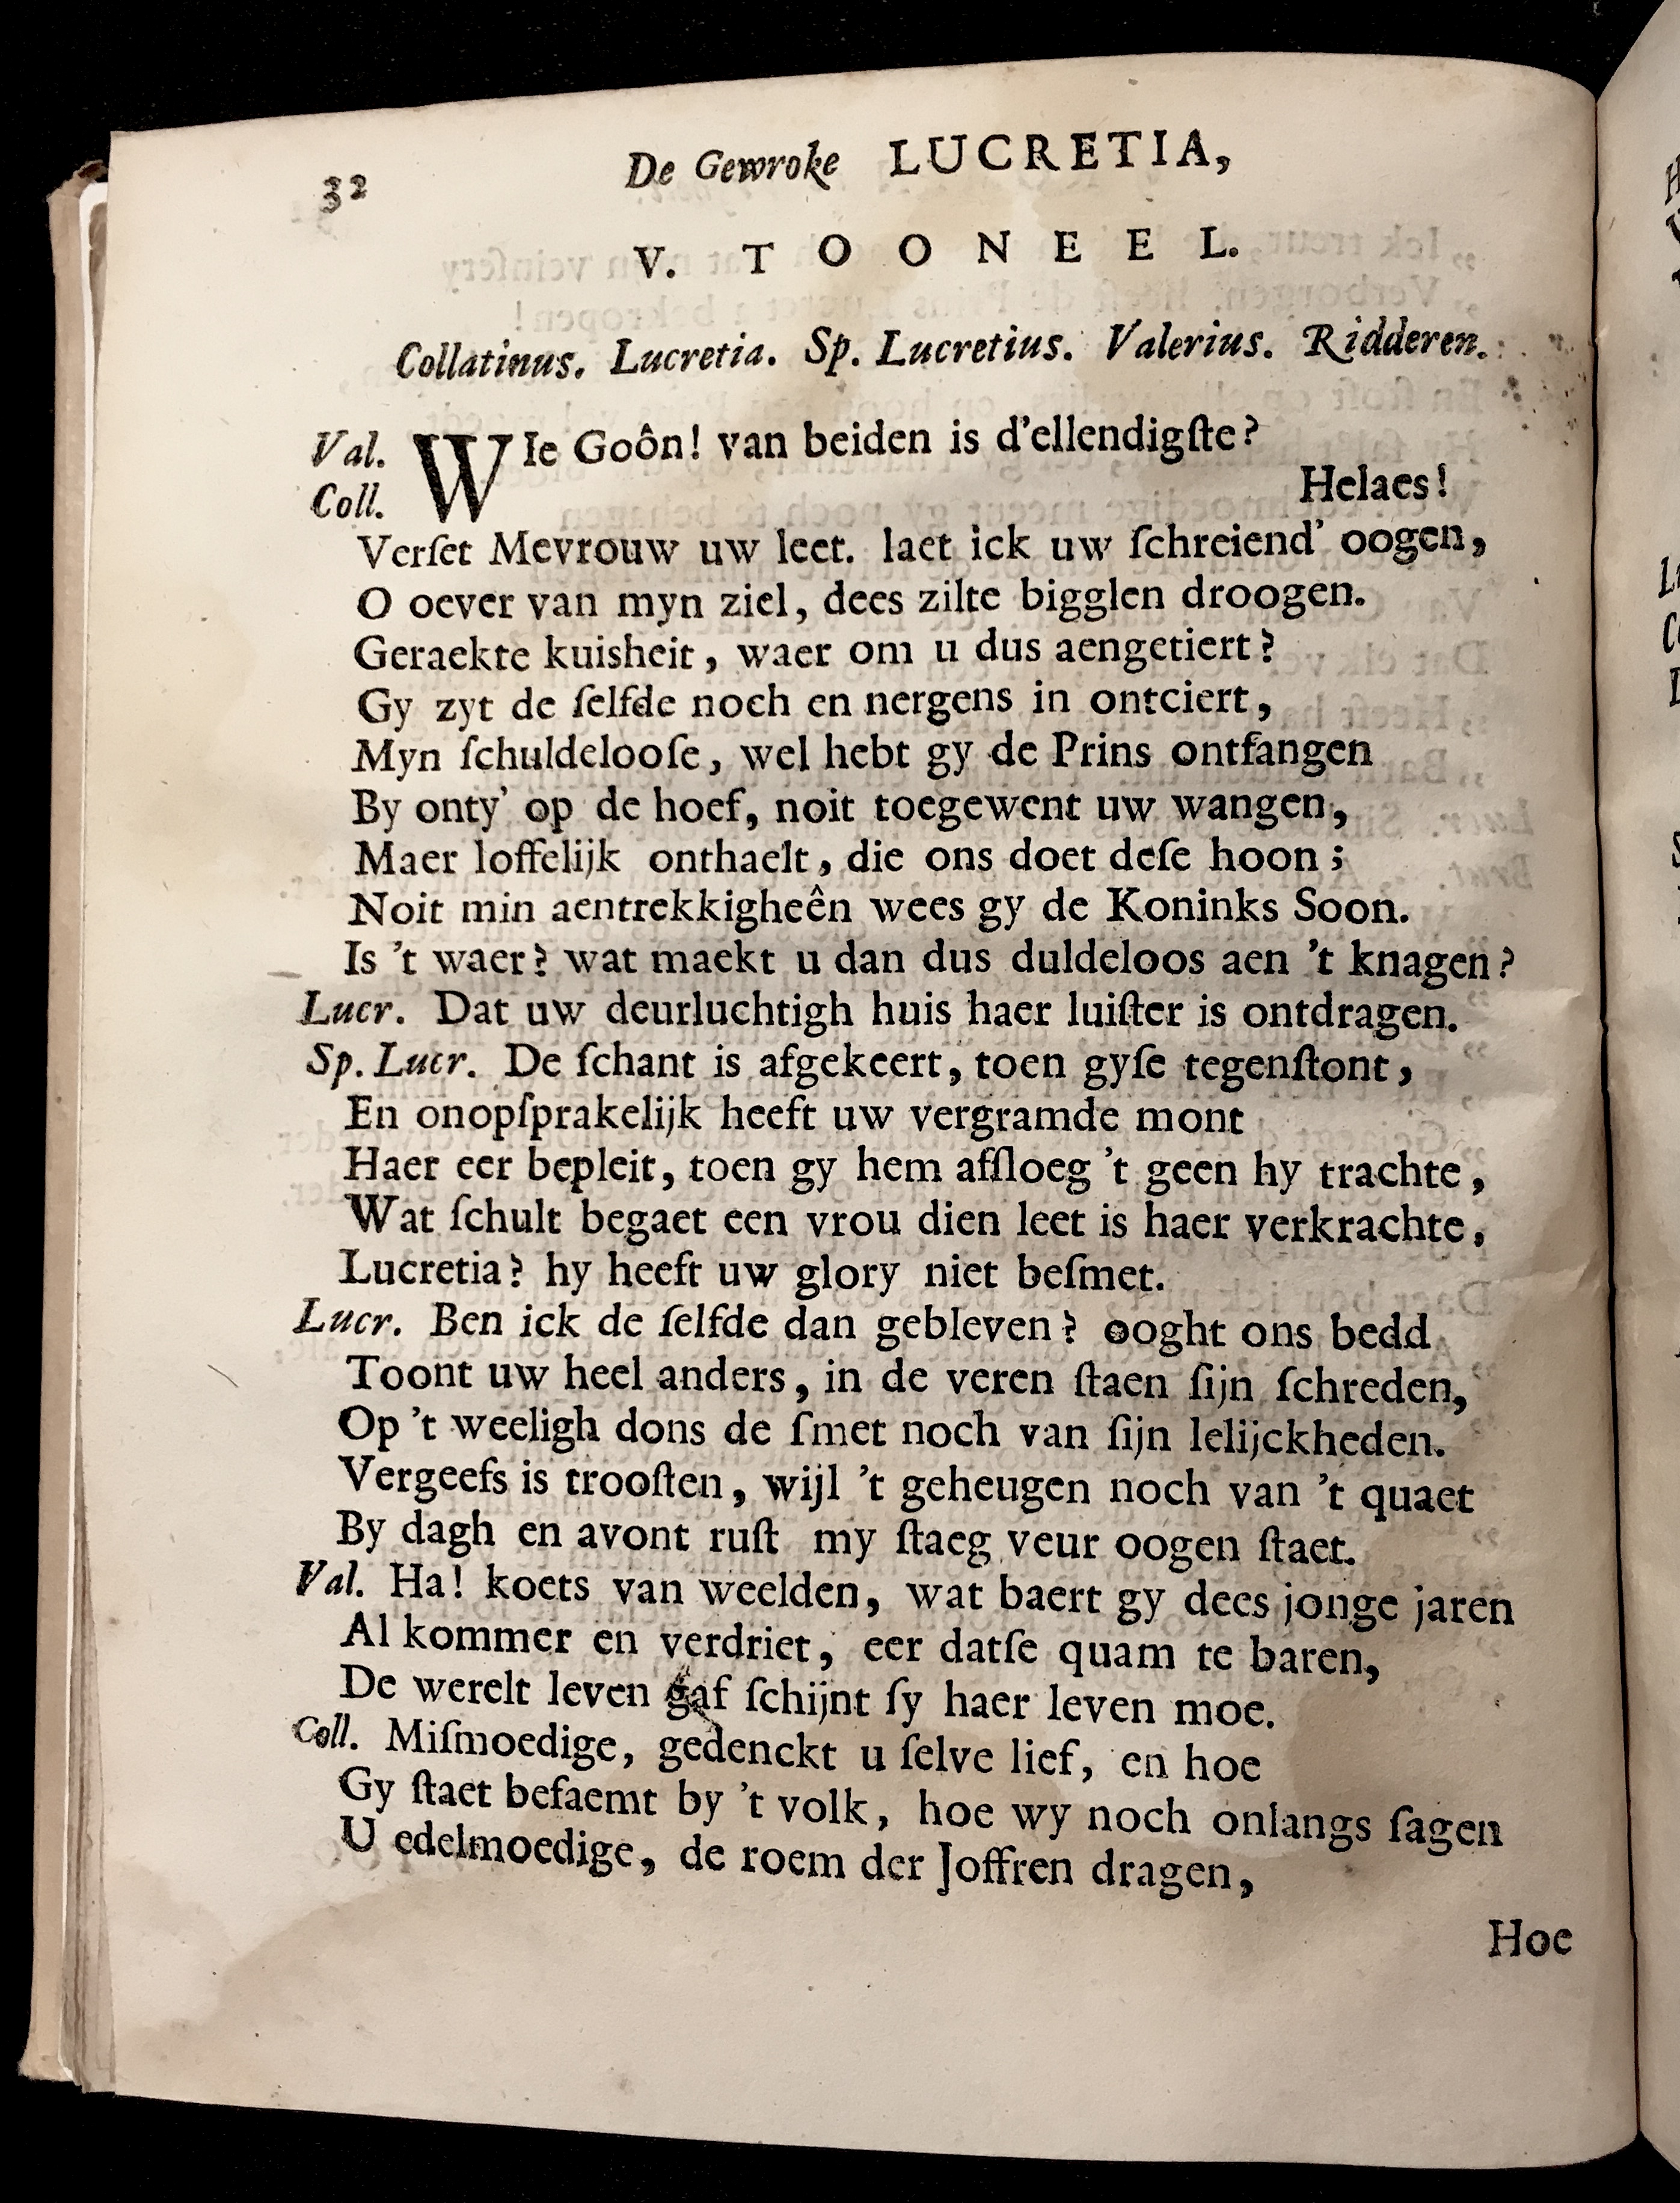 32 De Gewroke LUCRETIA,
V. TOONEEL.
Collatinus. Lucretia. Sp. Lucretius. Valerius. Ridderen.
Val. WIe Goôn! van beiden is d'ellendigſte?
Coll. Helaes!
Verſet Mevrouw uw leet. laet ick uw ſchreiend' oogen,
O oever van myn ziel, dees zilte bigglen droogen.
Geraekte kuisheit, waer om u dus aengetiert?
Gy zyt de ſelfde noch en nergens in ontciert,
Myn ſchuldelooſe, wel hebt gy de Prins ontfangen
By onty' op de hoef, noit toegewent uw wangen,
Maer loffelijk onthaelt, die ons doet deſe hoon;
Noit min aentrekkigheên wees gy de Koninks Soon.
Is 't waer? wat maekt u dan dus duldeloos aen 't knagen?
Lucr. Dat uw deurluchtigh huis haer luiſter is ontdragen.
Sp. Lucr. De ſchant is afgekeert, toen gyſe tegenſtont,
En onopſprakelijk heeft uw vergramde mont
Haer eer bepleit, toen gy hem afſloeg 't geen hy trachte,
Wat ſchult begaet een vrou dien leet is haer verkrachte,
Lucretia? hy heeft uw glory niet beſmet.
Lucr. Ben ick de ſelfde dan gebleven? ooght ons bedd
Toont uw heel anders, in de veren ſtaen ſijn ſchreden,
Op 't weeligh dons de ſmet noch van ſijn lelijckheden.
Vergeefs is trooſten, wijl 't geheugen noch van 't quaet
By dagh en avont ruſt my ſtaeg veur oogen ſtaet.
Val. Ha! koets van weelden, wat baert gy dees jonge jaren
Al kommer en verdriet, eer datſe quam te baren,
De werelt leven gaf ſchijnt ſy haer leven moe.
Coll. Miſmoedige, gedenckt u ſelve lief, en hoe
Gy ſtaet befaemt by 't volk, hoe wy noch onlangs ſagen
U edelmoedige, de roem der Joffren dragen,
Hoe